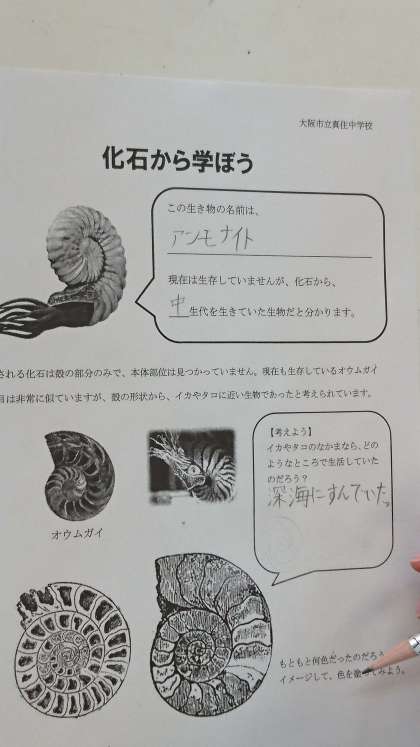 大阪市立真住中学校
化石から学ぼう
この生き物の名前は、
アンモナイト
現在は生存していませんが、化石から、
中生代を生きていた生物だと分かります。
される化石は殻の部分のみで、本体部位は見つかっていません。現在も生存しているオウムガイ
目は非常に似ていますが、殻の形状から、イカやタコに近い生物であったと考えられています。
【考えよう】
イカやタコのなかまなら、どの
ようなところで生活していた
のだろう？
深海にすんでいた。
オウムガイ
もともと何色だったのだろう
イメージして、色を塗ってみよう。